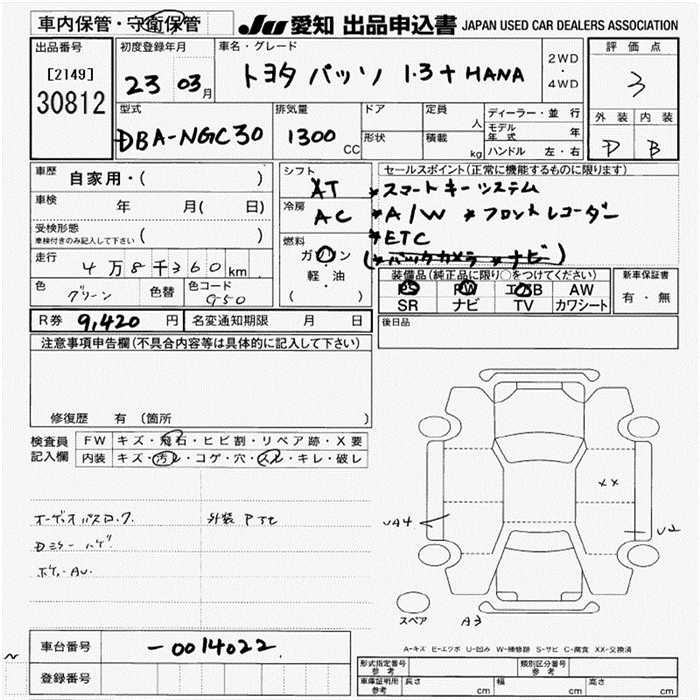 車内保管・守衛保管
JU 愛知 出品申込書 JAPAN USED CAR DEALERS ASSOCIATION
出品番号
[2149]
30812
初度登録年月
23 03月
車名・グレード
トヨタ パッソ 1.3+HANA
2WD
・
4WD
評価点
3
外装 内装
D B
型式
DBA-NGC30
排気量
1300 CC
ドア
形状
定員 人
積載 kg
ディーラー・並行
モデル年式 年
ハンドル 左・右
車歴
自家用・( )
車検 年 月( 日)
受検形態
車検付きのみ記入して下さい ( )
走行
4万8千360km
色
グリーン
色替
色コード
G50
シフト
AT
冷房
AC
燃料
ガソリン
・
軽・油
( )
セールスポイント(正常に機能するものに限ります)
*スマートキーシステム
*A/W *フロントレコーダー
*ETC
(*バックカメラ *ナビ)
装備品(純正品に限り○をつけてください)
PS PW エアB AW
SR ナビ TV カワシート
新車保証書
有・無
R券 9,420 円 名変通知期限 月 日
後日品
注意事項申告欄(不具合内容等は具体的に記入して下さい)
修復歴 有(箇所 )
検査員
記入欄
FW キズ・飛石・ヒビ割・リペア跡・X要
内装 キズ・汚レ・コゲ・穴・スレ・キレ・破レ
オーディオパスロック. 外装
Dミラー ハゲ
XX
UA4
U2
スペア
A3
A-キズ E-エクボ U-凹み W-補修跡 S-サビ C-腐食 XX-交換済
車台番号 -0014022
登録番号
型式指定番号
参考
類別区分番号
参考
車庫証明用
参考
長さ cm 幅 cm 高さ cm